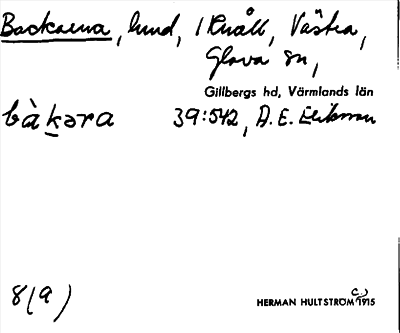 Backarna, hund, i Knåll, Västra,
Glava sn,
Gillbergs hd, Värmlands län
bàḵəra 39:542, D. E. Eriksson
8(9)
HERMAN HULTSTRÖM (C.) 1915